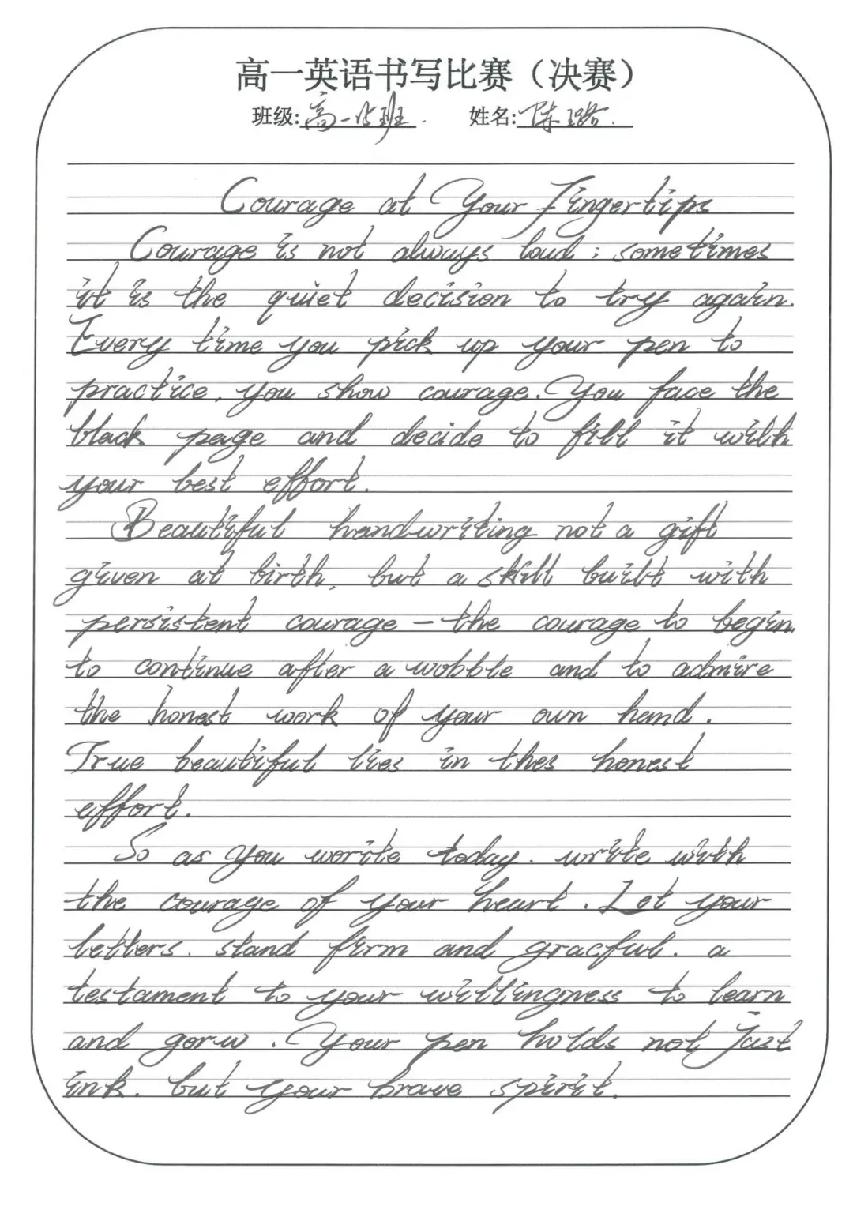 高一英语书写比赛（决赛）
班级:高一15班. 姓名:陈璐.
Courage at Your Fingertips
Courage is not always loud ; sometimes
it is the quiet decision to try again.
Every time you pick up your pen to
practice, you show courage. You face the
black page and decide to fill it with
your best effort.
Beautiful handwriting not a gift
given at birth, but a skill built with
persistent courage - the courage to begin,
to continue after a wobble and to admire
the honest work of your own hand.
True beautiful lies in thes honest
effort.
So as you worite today. write with
the courage of your heart. Let your
letters. stand firm and gracful. a
testament to your willingness to learn
and gorw. Your pen holds not just
ink. but your brave spirit.